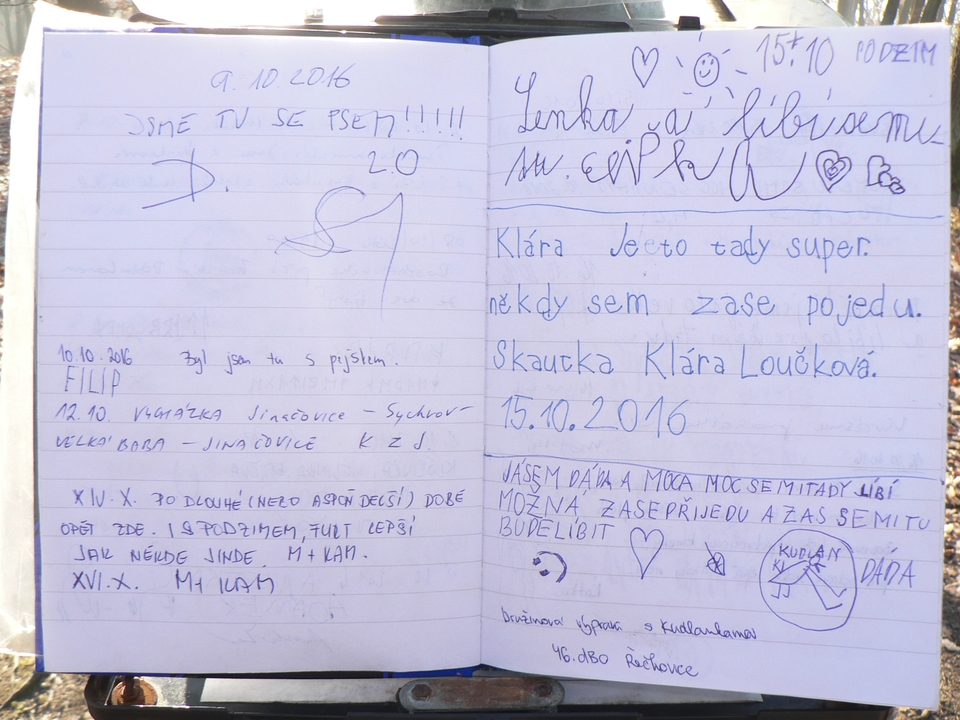 9.10.2016
JSME TU SE PSEM!!!!!!
D.
2.0
10.10.2016 Byl jsem tu s pejskem.
FILIP
12.10. VYCHÁZKA Jinačovice – Sychrov –
VELKÁ BABA – JINAČOVICE K Z J.
XIV. X. PO DLOUHÉ (NEBO ASPOŇ DELŠÍ) DOBĚ
OPĚT ZDE. I S PODZIMEM, FURT LEPŠÍ
JAK NĚKDE JINDE. M + KAM.
XVI. X. M + KAM
15.10 PODZIM
Lenka a líbí se mi
Klára Je to tady super.
někdy sem zase pojedu.
Skautka Klára Loučková.
15.10.2016
JÁSEM DÁDA A MOCA MOC SEMITADY LÍBÍ
MOŽNÁ ZASEPŘIJEDU A ZAS SEMITU
BUDELÍBIT
KUDLAN
KY
DÁDA
Družinová výprava s Kudlankama
46. dBO Řečkovce